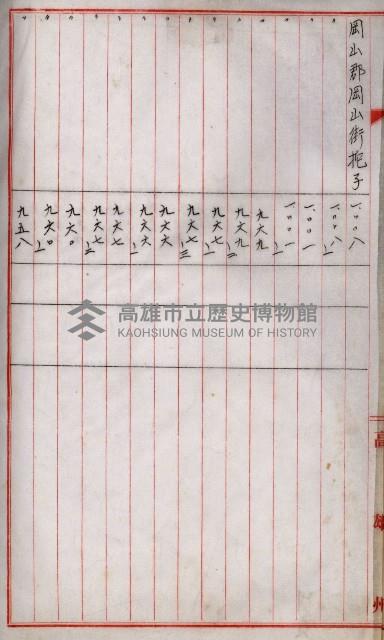 岡山郡岡山街拕子
一、〇〇八
一、〇〇八ノ一
一、〇〇一
一、〇〇一ノ一
九六九
九六九ノ二
九六七ノ一
九六七ノ三
九六六
九六六ノ一
九六七
九六七ノ二
九六〇
九六〇ノ一
九五八
高雄市立歷史博物館
KAOHSIUNG MUSEUM OF HISTORY
高雄州